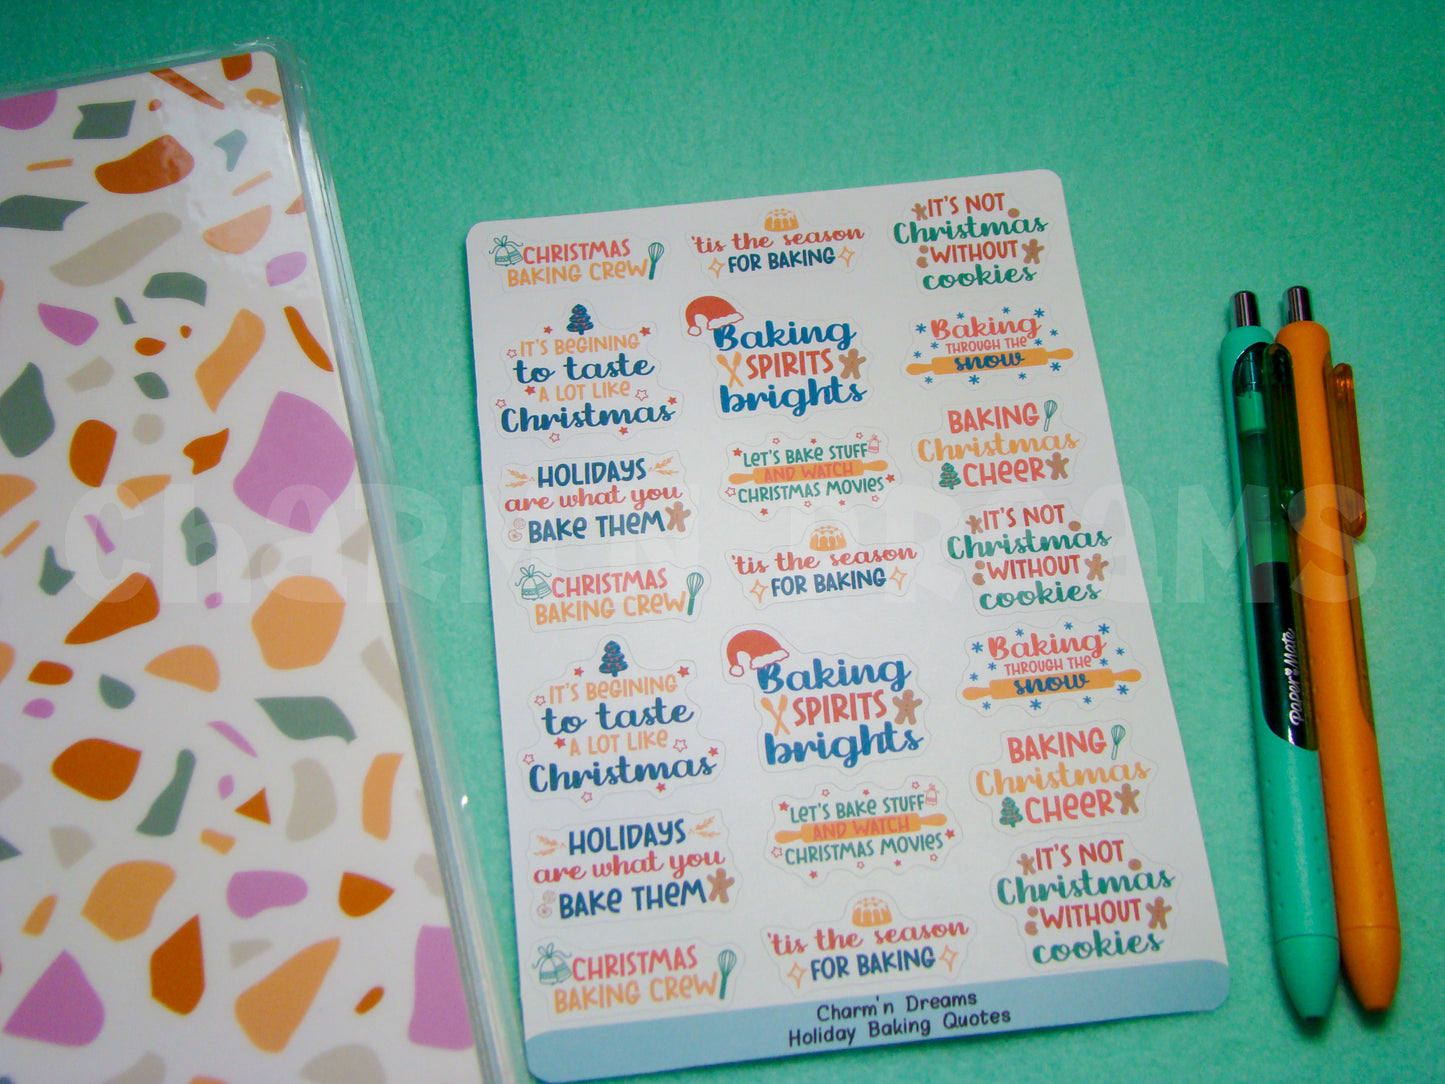 CHRISTMAS
BAKING CREW
'tis the season
FOR BAKING
IT'S NOT
Christmas
WITHOUT
cookies
IT'S BEGINING
to taste
A LOT LIKE
Christmas
Baking
SPIRITS
brights
Baking
THROUGH THE
snow
HOLIDAYS
are what you
BAKE THEM
LET'S BAKE STUFF
AND WATCH
CHRISTMAS MOVIES
BAKING
Christmas
CHEER
CHRISTMAS
BAKING CREW
'tis the season
FOR BAKING
IT'S NOT
Christmas
WITHOUT
cookies
IT'S BEGINING
to taste
A LOT LIKE
Christmas
Baking
SPIRITS
brights
Baking
THROUGH THE
snow
HOLIDAYS
are what you
BAKE THEM
LET'S BAKE STUFF
AND WATCH
CHRISTMAS MOVIES
BAKING
Christmas
CHEER
CHRISTMAS
BAKING CREW
'tis the season
FOR BAKING
IT'S NOT
Christmas
WITHOUT
cookies
Charm'n Dreams
Holiday Baking Quotes
Paper Mate
CHARM'N DREAMS